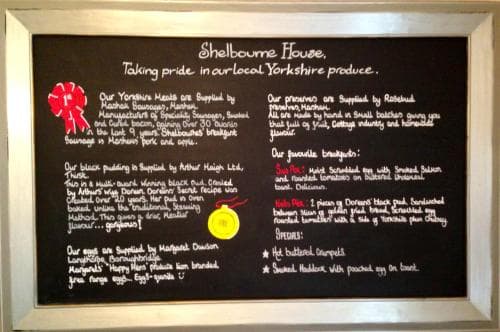 Shelbourne House.
Taking pride in our local Yorkshire produce.
Our Yorkshire Meats are Supplied by
Masham Sausages, Masham.
Manufacturers of Speciality Sausages, Smoked
and Cured bacon, gaining over 30 awards
in the last 9 years. Shelbournes' breakfast
Sausage is Masham's pork and apple.
Our black pudding is Supplied by Arthur Haigh Ltd,
Thirsk.
This is a Multi-award winning black pud. Created
by Arthur's Wife Doreen. Doreens' Secret recipe was
Created over 20 years. Her pud is Oven
baked, unlike the traditional Steaming
Method. This gives a drier, Meatier
flavour... gorgeous!
Our eggs are Supplied by Margaret Dawson
Langthorpe, Boroughbridge.
Margarets' "Happy Hens" produce lion branded
free range eggs.
Our preserves are Supplied by Rosebud
preserves, Masham.
All are made by hand in Small batches giving you
that full of fruit, Cottage industry and homemade
flavour.
Our favourite breakfasts:
Moist Scrambled egg with Smoked Salmon
and roasted tomatoes on buttered wholemeal
toast. Delicious.
2 pieces of Doreen's black pud, Sandwiched
between Slices of golden fried bread, Scrambled egg
roasted tomatoes with a Side of Yorkshire plum Chutney.
Specials:
★ Hot buttered Crumpets.
★ Smoked Haddock with poached egg on toast.